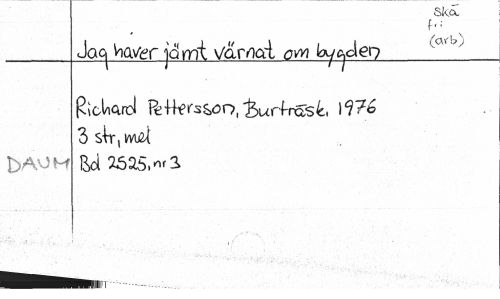 Skä
fr:
(arb)
Jag haver jämt värnat om bygden
Richard Pettersson, Burträsk, 1976
3 str, mel
DAUM Bd 2525, nr 3